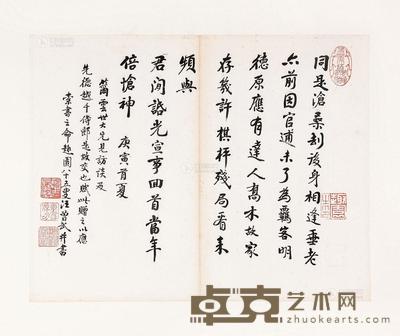 同是滄桑劫後身相逢垂老
亦前因官逋未了為羈客明
德原應有達人喬木故家
存幾許棋枰殘局看來
頻與
君閒話光宣事回首當年
倍愴神
庚寅首夏
蒼雲世大兄見訪談及
先德越千侍郎遺政交也賦此贈之以應
索書之命趣園八十五叟汪曾武并書
卓克艺术网
www.zhuokearts.com